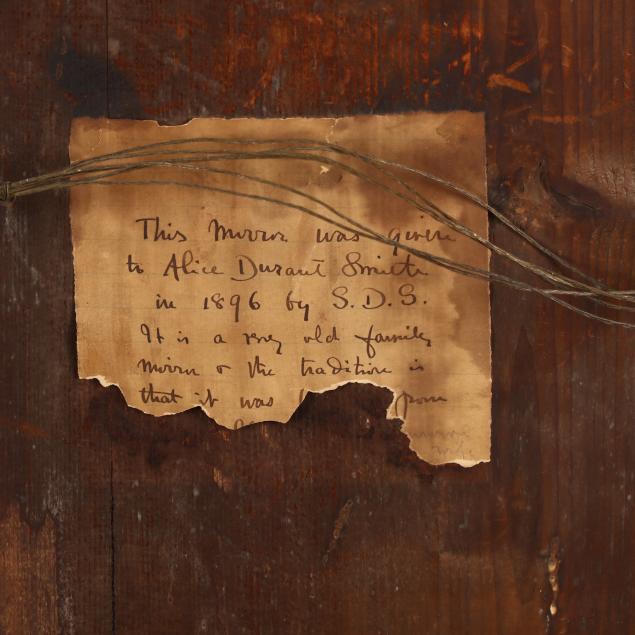 This Mirror was given
to Alice Durant Smith
in 1896 by S.D.S.
It is a very old family
mirror & the tradition is
that it was from